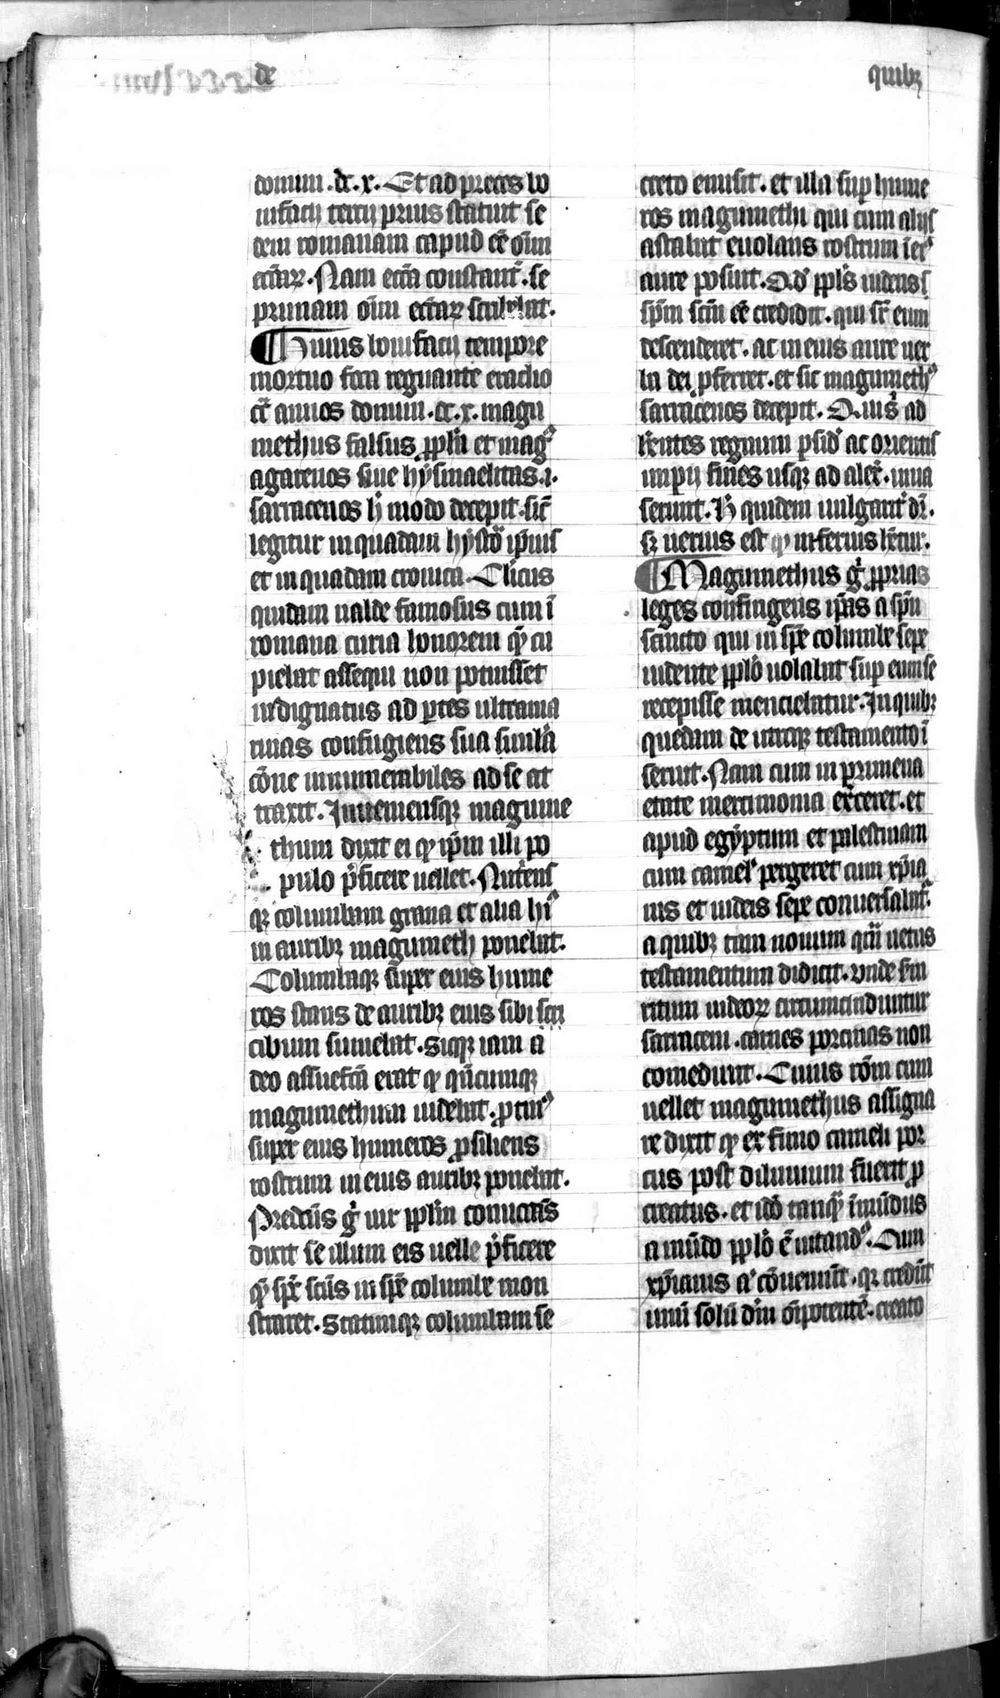 de
quibꝫ
domini .dc.x. Et ad preces bo
nifacij tercij prius statuit se
dem romanam capud eē oīm
ecc̄iaꝝ. Nam ecc̄ia constant̄. se
primam oīm ecc̄iaꝝ scribebat.
Huius bonifacij tempore
mortuo foca regnante eraclio
circa annos domini .dc.x. magu
methus falsus ꝓph̄a et magꝰ
agarenos siue hysmaelitas .i.
sarracenos h̄ modo decepit. sic̄
legitur in quadam hystoͬ ip̄ius
et in quadam cronica. Cl̄icus
quidam ualde famosus cum ī
romana curia honorem qͣ cu
piebat assequi non potuisset
indignatus ad ꝑtes ultrama
rinas confugiens sua simula
cōne innumerabiles ad se at
traxit. Inueniensqꝫ magume
thum dixit ei qꝫ ip̄m illi po
pulo p̄ficere uellet. Nutriens
qꝫ columbam grana et alia hꝰ
in auribꝫ magumeth ponebat.
Columbaqꝫ super eius hume
ros stans de auribꝫ eius sibi
cibum sumebat. Sicqꝫ iam a
deo assuefc̄a erat qꝫ qn̄cumqꝫ
magumethum uidebat. ꝓtinꝰ
super eius humeros ꝓsiliens
rostrum in eius auribꝫ ponebat.
Predc̄us g̊ uir ppl̄m conuocās
dixit se illum eis uelle p̄ficere
qͣ sp̄s sc̄us in sp̄e columbe mon
straret. Statimqꝫ columbam se
creto emisit. et illa suꝑ hume
ros magumethi qui cum alijs
astabat euolans rostrum ī eiꝰ
aure posuit. Qd̄ ppl̄s uidens
sp̄m sc̄m eē credidit. qui sr̄ eum
descenderet. ac in eius aure uer
ba dei ꝓferret. et sic magumethꝰ
sarracenos decepit. Qui s̄ ad
herentes regnum ꝑsidꝰ ac orientis
imperij fines usqꝫ ad alex̄. inua
serunt. H̄ quidem uulgarit̄ dr̄.
sꝫ uerius est qꝫ inferius hētur.
Magumethus g̊ ꝓprias
leges confingens ip̄as a sp̄u
sancto qui in sp̄e columbe sepe
uidente ppl̄o uolabat suꝑ eum se
recepisse menciebatur. In quibꝫ
quedam de utroqꝫ testamento ī
seruit. Nam cum in primeua
etate mercimonia ex̄ceret. et
apud egyptum et palestinam
cum camelꝭ pergeret cum xp̄ia
nis et iudeis sepe conuersabat̄.
a quibꝫ tam nouum qͣm uetus
testamentum didicit. vnde s̄m
ritum iudeoꝝ circumciduntur
sarraceni. carnes porcinas non
comedunt. Cuius rōm cum
uellet magumethus assigna
re dixit qꝫ ex fimo cameli por
cus post diluuium fuerit ꝓ
creatus. et iō tanqͣ īmūdus
a mūdo ppl̄o ē uitandꝰ. Cum
xp̄ianis aͥ cōueniūt. qꝫ credūt
unū solū dn̄m oīpotentē. creato